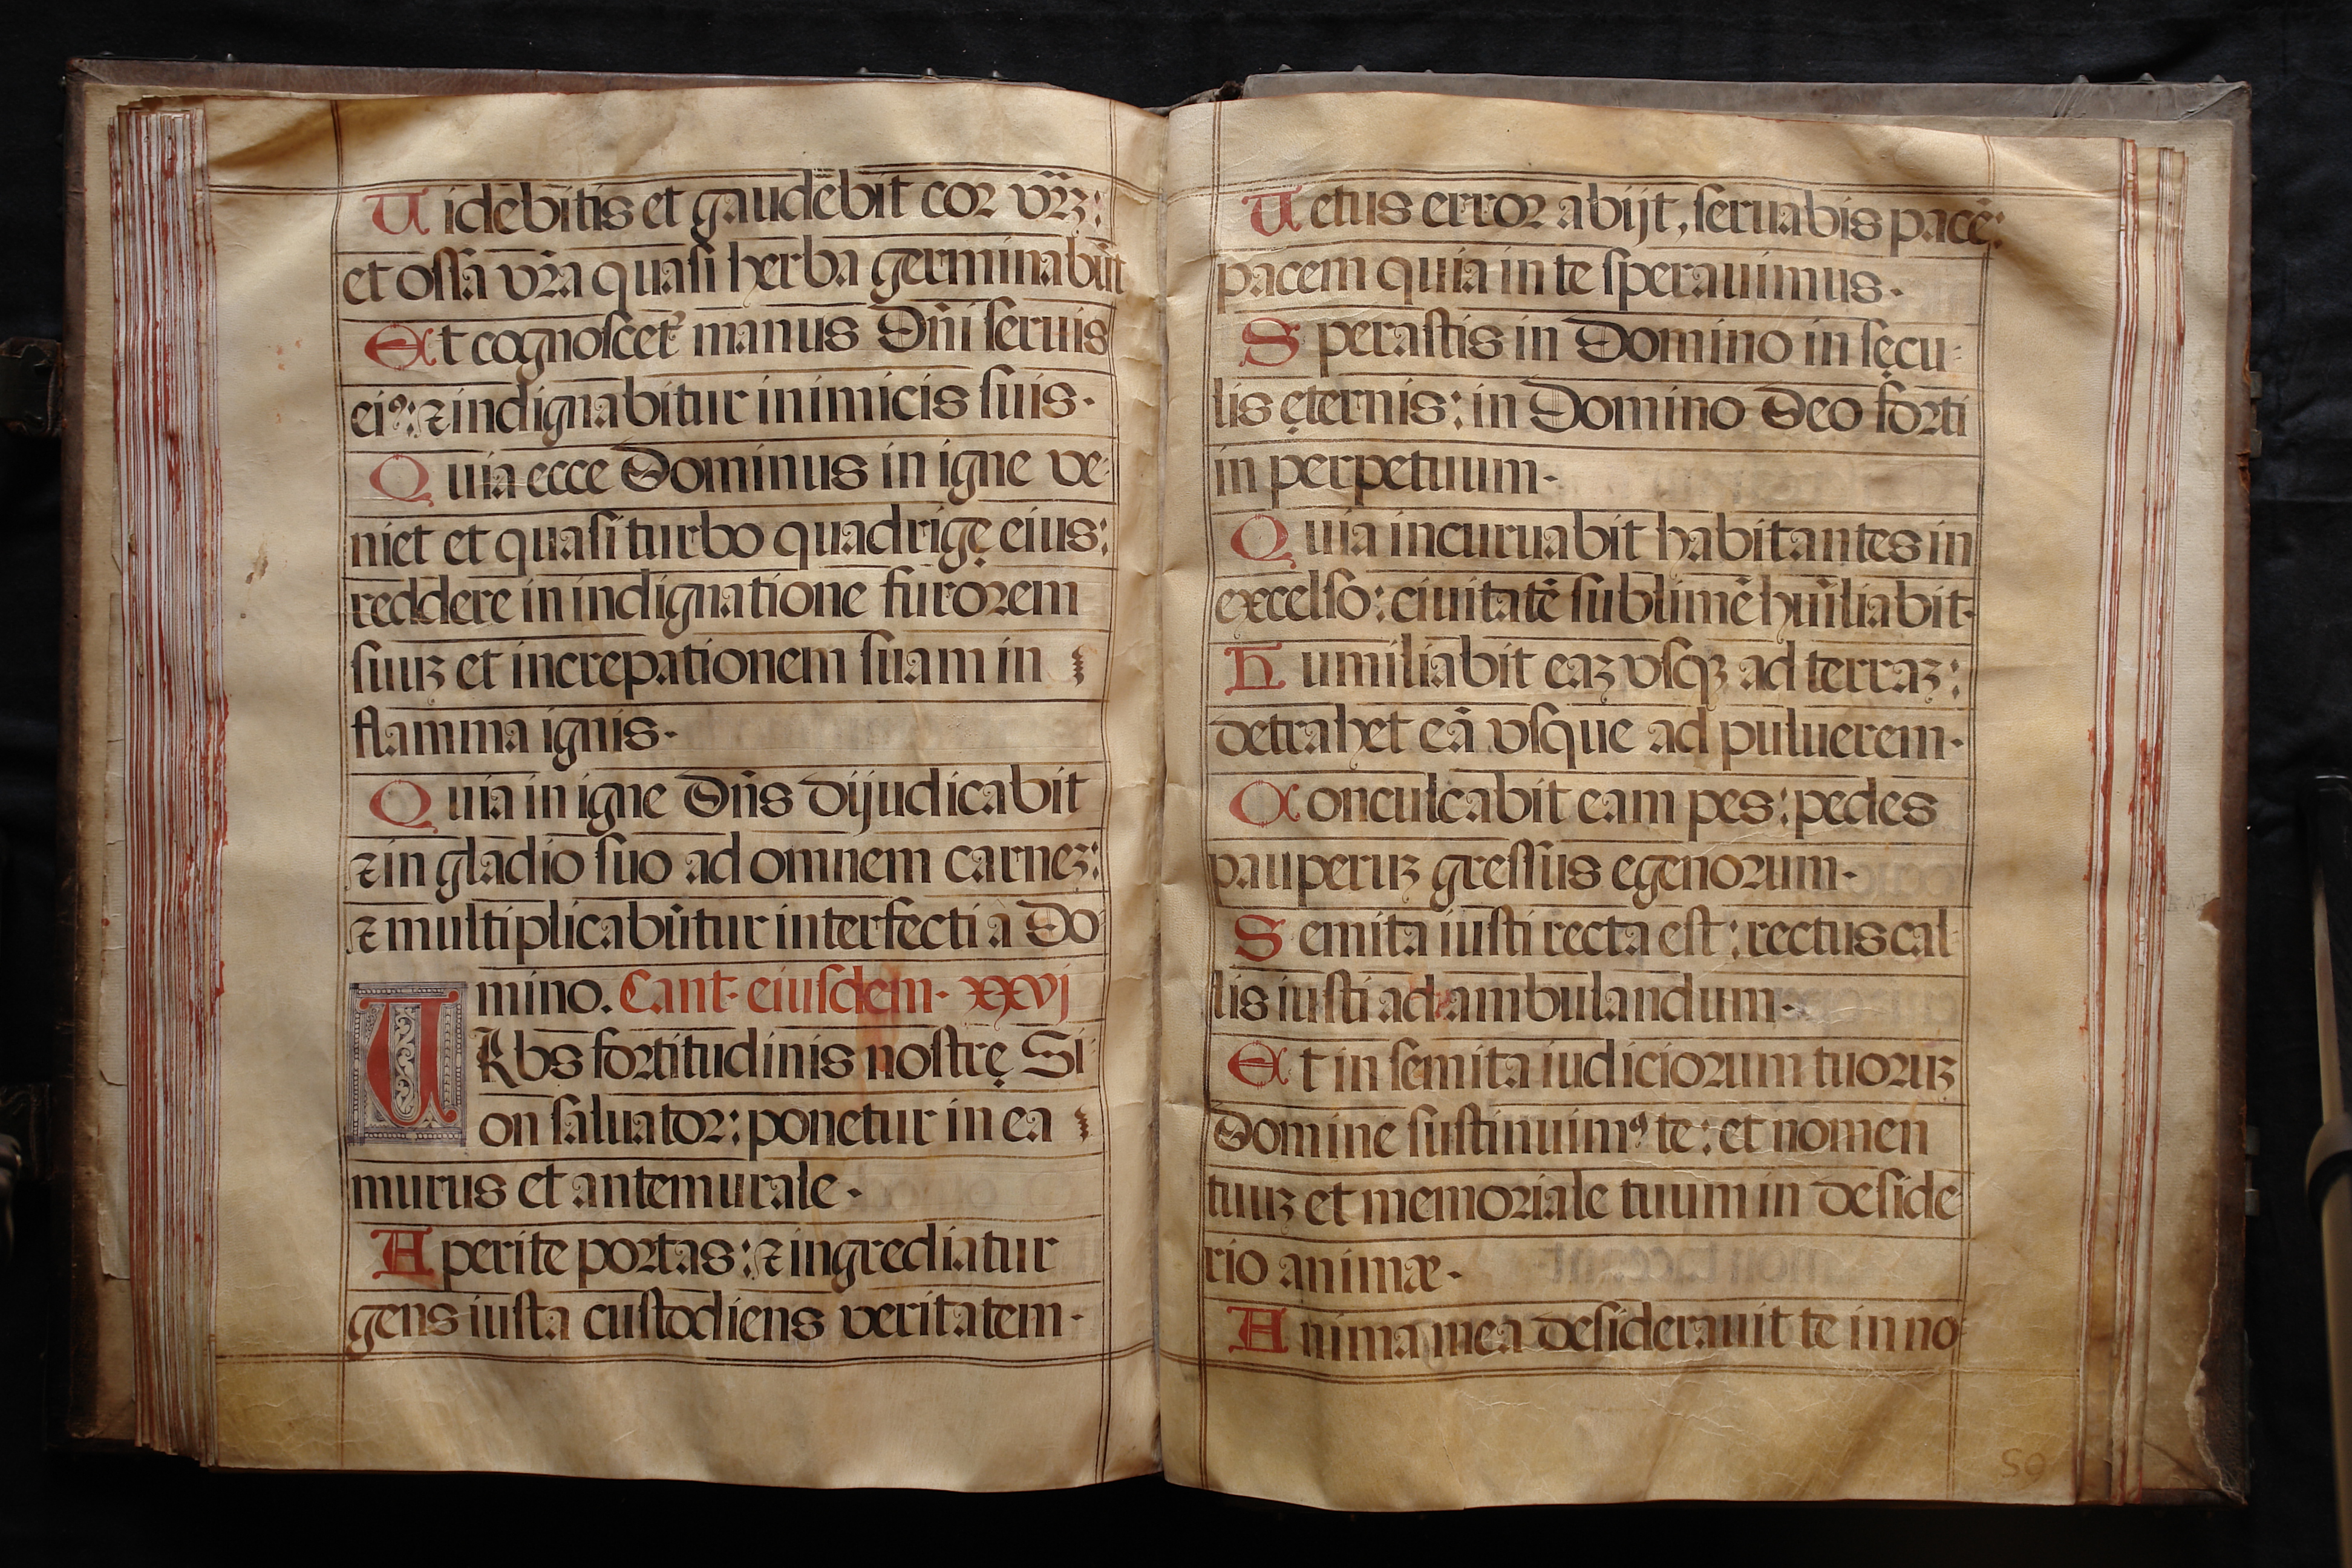 Uidebitis et gaudēbit cor vr̄ꝫ:
et ossa vr̄a quasi herba germinabūt
Et cognoscet᷑ manus Dn̄i seruis
eiꝰ: ⁊ indignabitur inimicis suis.
Quia ecce Dominus in igne ve-
niet et quasi turbo quadrigę eius:
reddere in indignatione furorem
suuꝫ et increpationem suam in
flamma ignis.
Quia in igne Dn̄s dijudicabit
⁊ in gladio suo ad omnem carneꝫ:
⁊ multiplicabūtur interfecti à Do-
mino. Cant. eiusdem. xxvj
URbs fortitudinis nostrę Si-
on saluator: ponetur in ea
murus et antemurale.
Aperite portas: ⁊ ingrediatur
gens iusta custodiens veritatem.
Uetus error abijt, seruabis pacē:
pacem quia in te sperauimus.
Sperastis in Domino in sęcu-
lis ęternis: in Domino Deo forti
in perpetuum.
Quia incuruabit habitantes in
excelso: ciuitatē sublimē hūiliabit.
Humiliabit eaꝫ vsqꝫ ad terraꝫ:
detrahet eā vsque ad puluerem.
Conculcabit eam pes: pedes
pauperuꝫ gressus egenorum.
Semita iusti recta est: rectus cal-
lis iusti ad ambulandum.
Et in semita iudiciorum tuoruꝫ
Domine sustinuimꝰ te: et nomen
tuuꝫ et memoriale tuum in deside
rio animæ.
Anima mea desiderauit te in no-
59